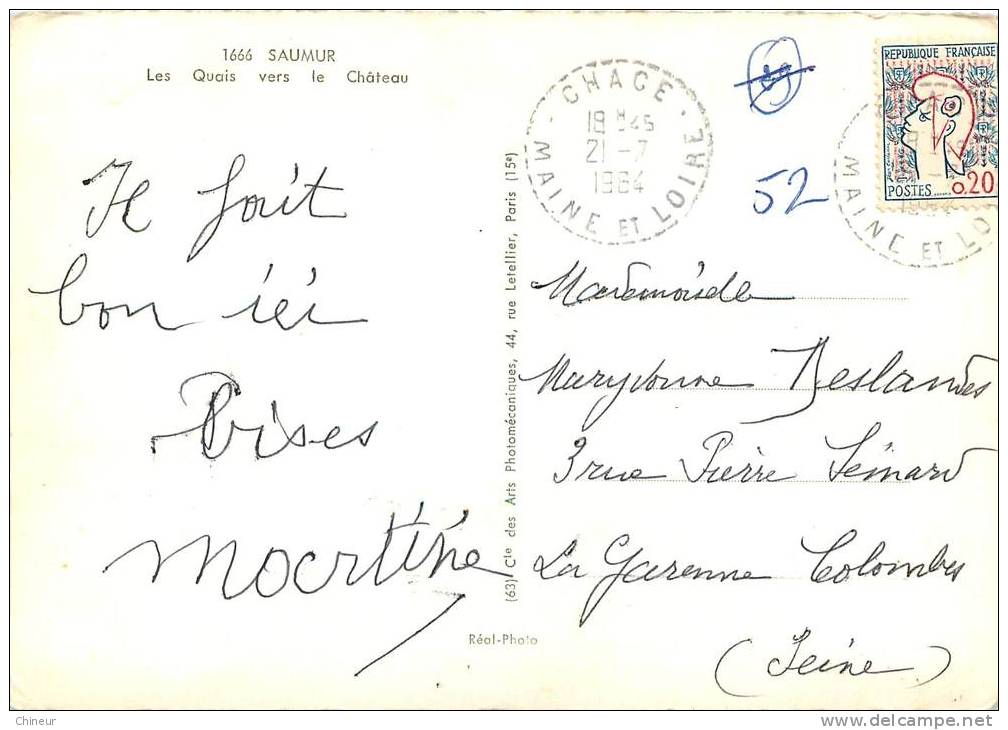 1666 SAUMUR
Les Quais vers le Château
Il fait
bon ici
Bises
Martine
(63) Cie des Arts Photomécaniques, 44, rue Letellier, Paris (15e)
Réal-Photo
CHACE
18H45
21-7
1964
MAINE ET LOIRE
52
REPUBLIQUE FRANÇAISE
POSTES 0,20
MAINE ET LO
Mademoiselle
Maryvonne Deslandes
3 rue Pierre Sémard
La Garenne Colombes
(Seine)
Chineur
delcampe.net